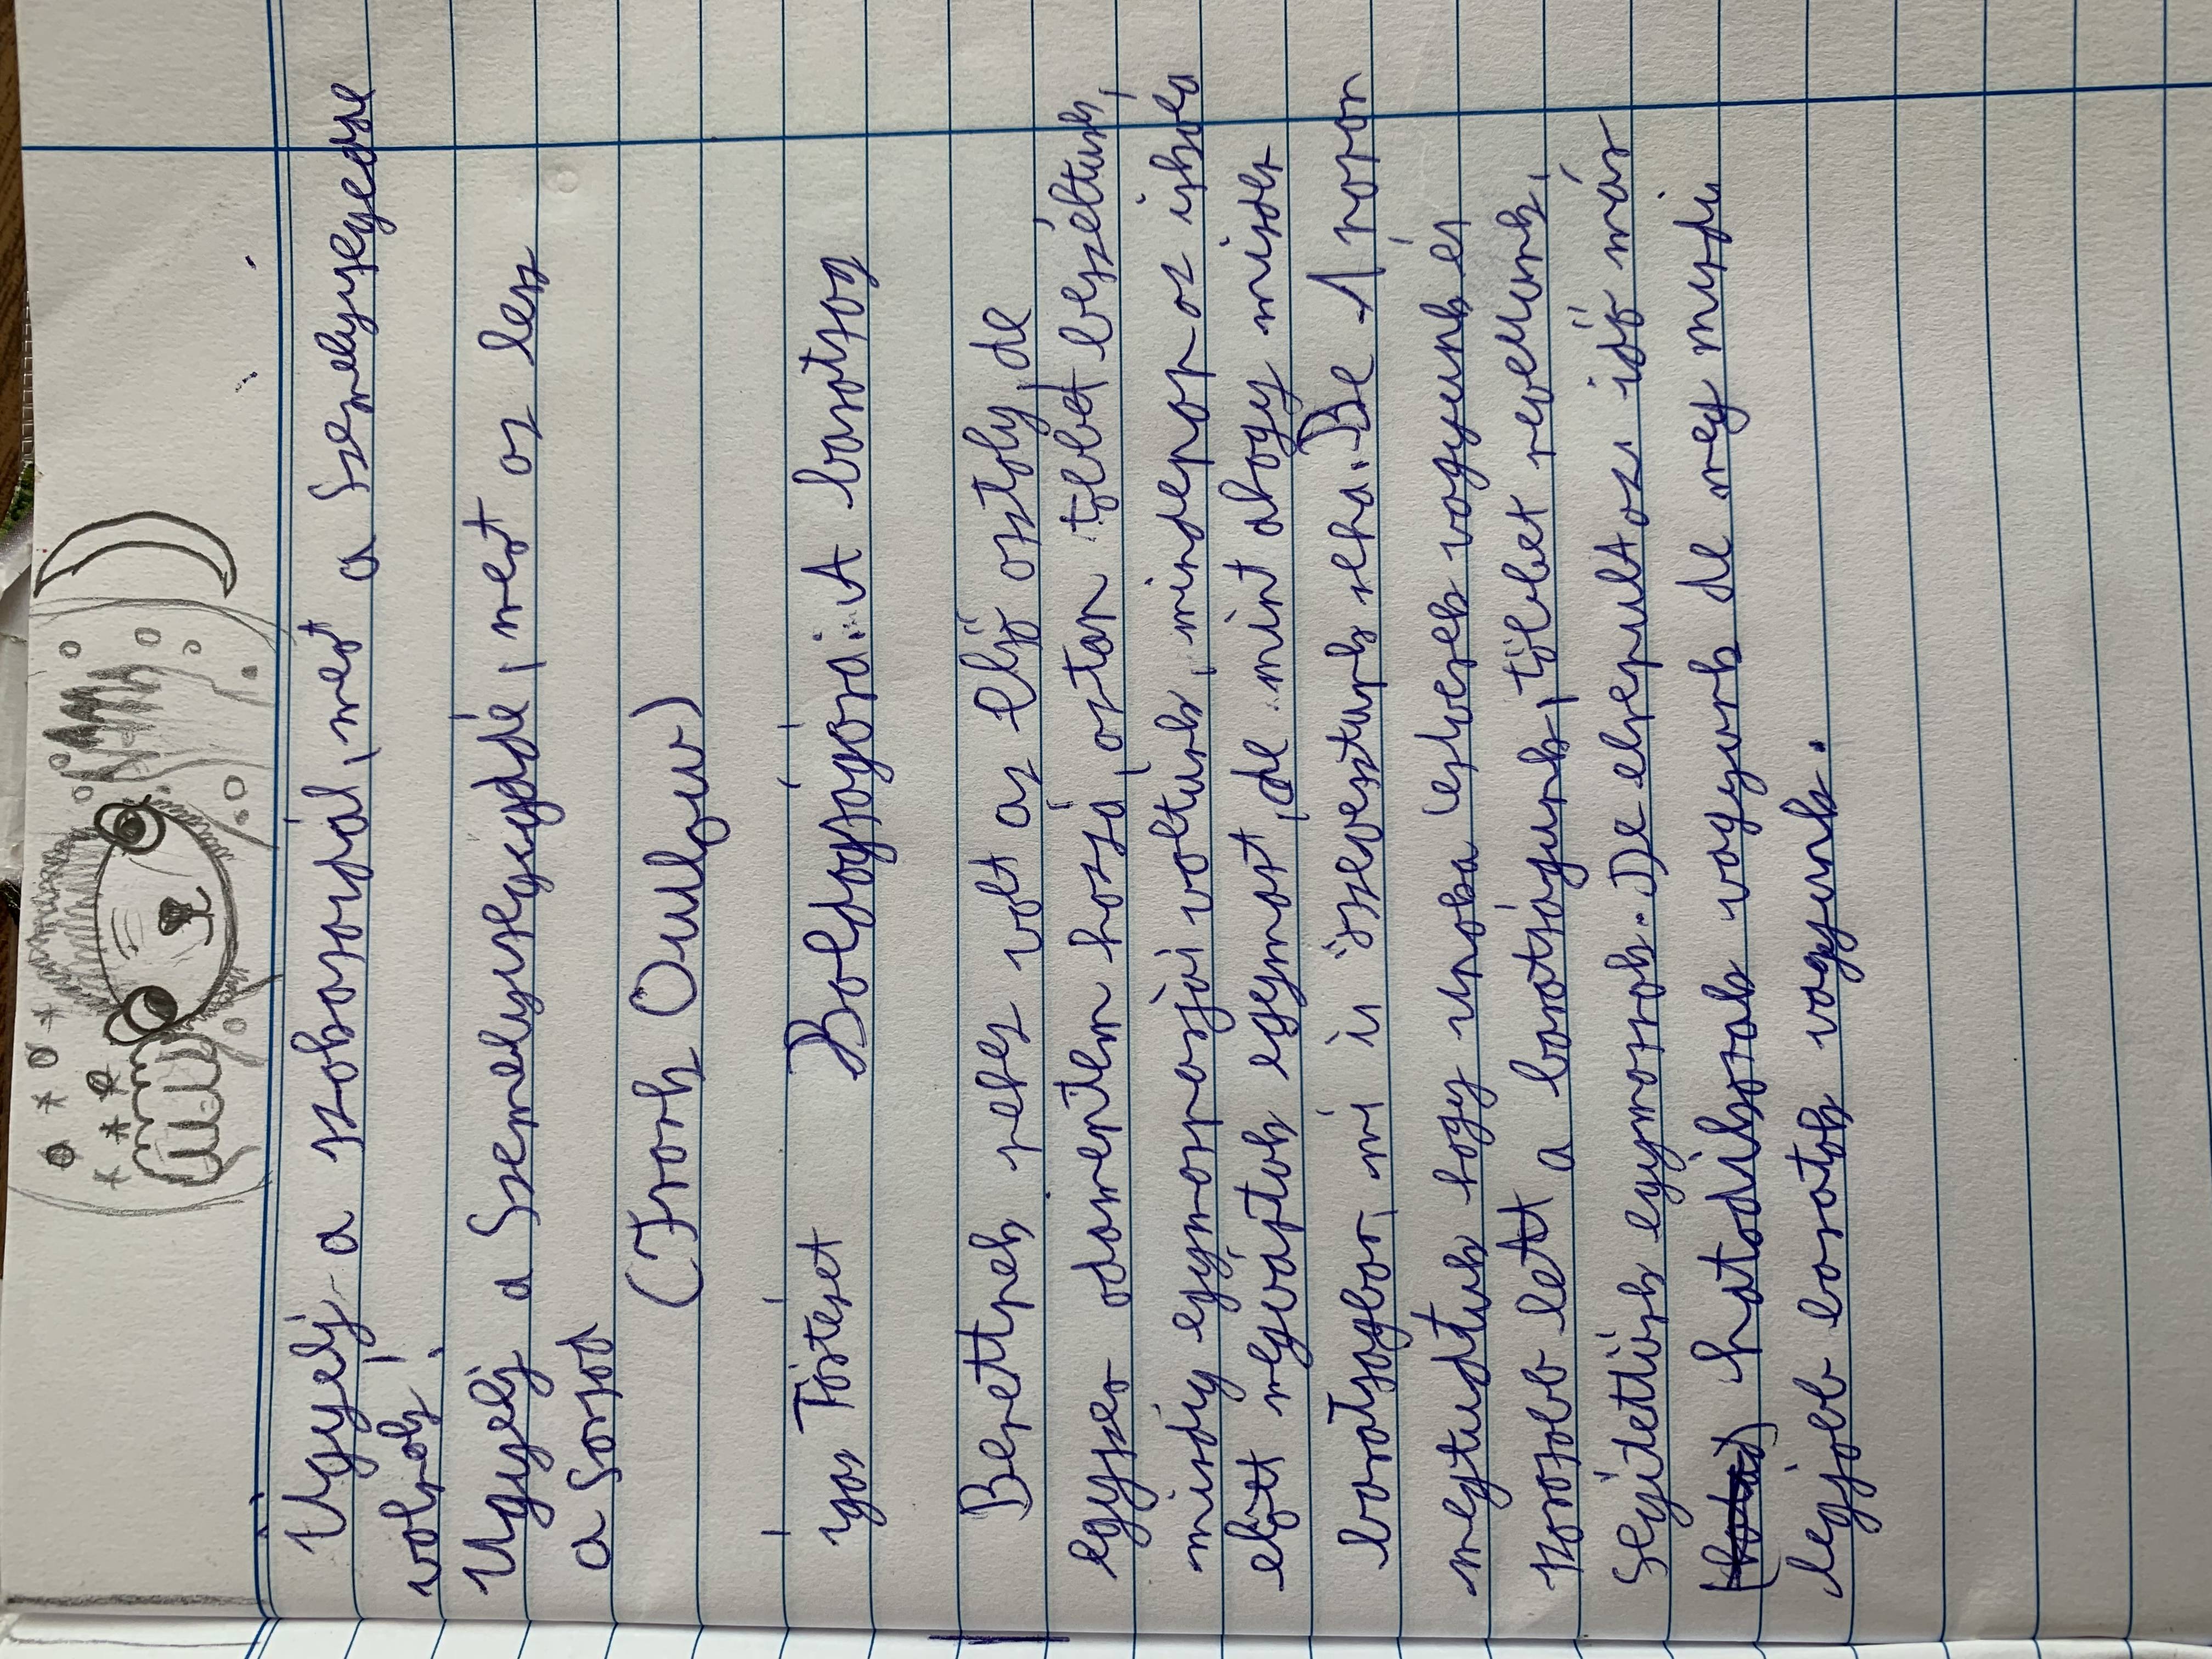 Ugyelj a szokasaidal, mert a személyiségedé
válnak!
Ugyelj a személyiségedé, mert az lesz
a sorsod
(Frank Outlaw)
igaz Történet Boldogságóra: A barátság
Berettpek volt az első osztály, de
egyszer odamentem hozzá, aztan többet beszéltünk,
mindig egymáspadjai voltunk, mindennap az iskola
előtt megvártuk egymást, de mint ahogy minden
barátságban, mi is összevesztünk néha. De 1 napon
megtudtuk hogy unoka testverek vagyunk és
szorosabb lett a barátságunk, többet nevetünk,
segitettünk egymásnak. De elrepult az idő már
hatodikosok vagyunk de még mindi
legjobb barátok vagyunk.